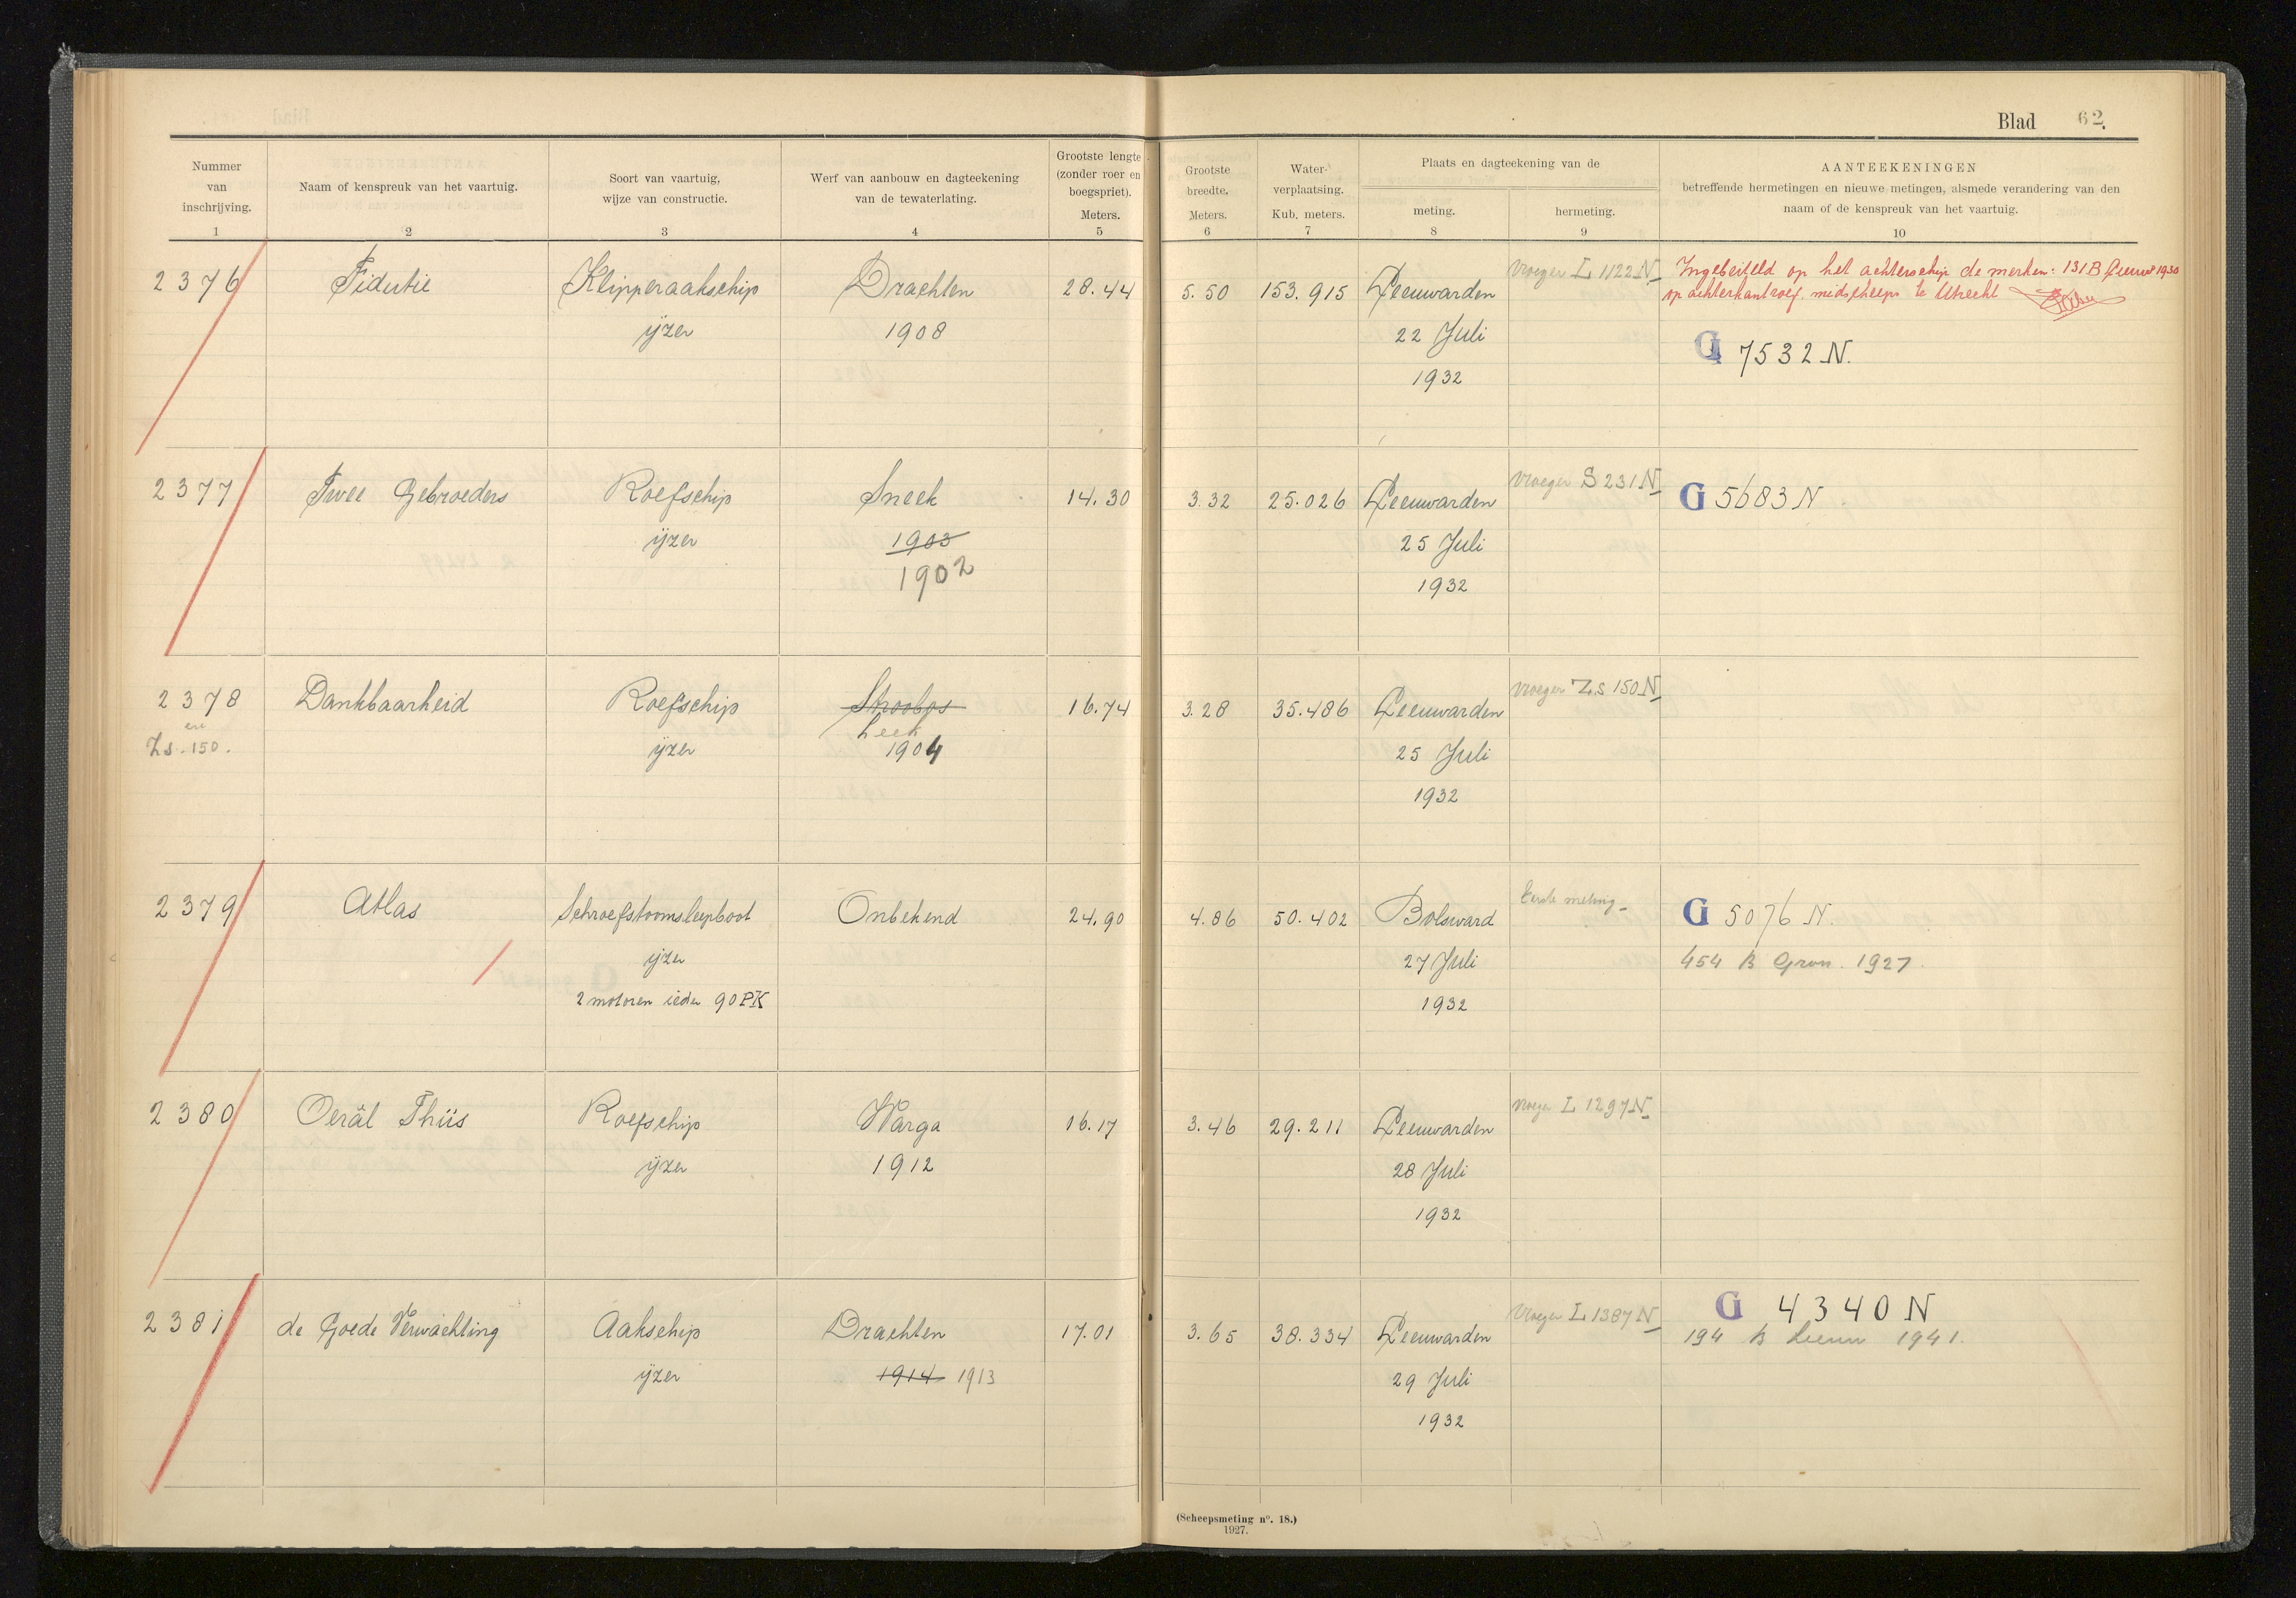 Blad 62.
Nummer
van
inschrijving.
1
Naam of kenspreuk van het vaartuig.
2
Soort van vaartuig,
wijze van constructie.
3
Werf van aanbouw en dagteekening
van de tewaterlating.
4
Grootste lengte
(zonder roer en
boegspriet).
Meters.
5
Grootste
breedte.
Meters.
6
Water-
verplaatsing.
Kub. meters.
7
Plaats en dagteekening van de
meting.
8
hermeting.
9
AANTEEKENINGEN
betreffende hermetingen en nieuwe metingen, alsmede verandering van den
naam of de kenspreuk van het vaartuig.
10
2376
Fidutie
Klipperaakschip
ijzer
Drachten
1908
28.44
5.50
153.915
Leeuwarden
22 Juli
1932
vroeger L 1122 N
Ingebeiteld op het achterschip de merken: 131 B Leeuw 1930
op achterkant roef midscheeps te Utrecht
G 7532 N.
2377
Twee Gebroeders
Roefschip
ijzer
Sneek
1903
1902
14.30
3.32
25.026
Leeuwarden
25 Juli
1932
vroeger S 231 N
G 5683 N
2378
en
Zs. 150.
Dankbaarheid
Roefschip
ijzer
Stroobos
Leek
1904
16.74
3.28
35.486
Leeuwarden
25 Juli
1932
vroeger Z.S 150 N
2379
Atlas
Schroefstoomsleepboot
ijzer
2 motoren ieder 90 PK
Onbekend
24.90
4.86
50.402
Bolsward
27 Juli
1932
Eerste meting
G 5076 N.
454 B Gron. 1927.
2380
Oerâl Thüs
Roefschip
ijzer
Warga
1912
16.17
3.46
29.211
Leeuwarden
28 Juli
1932
vroeger L 1297 N
2381
de Goede Verwachting
Aakschip
ijzer
Drachten
1914 1913
17.01
3.65
38.334
Leeuwarden
29 Juli
1932
vroeger L 1387 N
G 4340 N
194 B Leeuw 1941.
(Scheepsmeting nº. 18.)
1927.